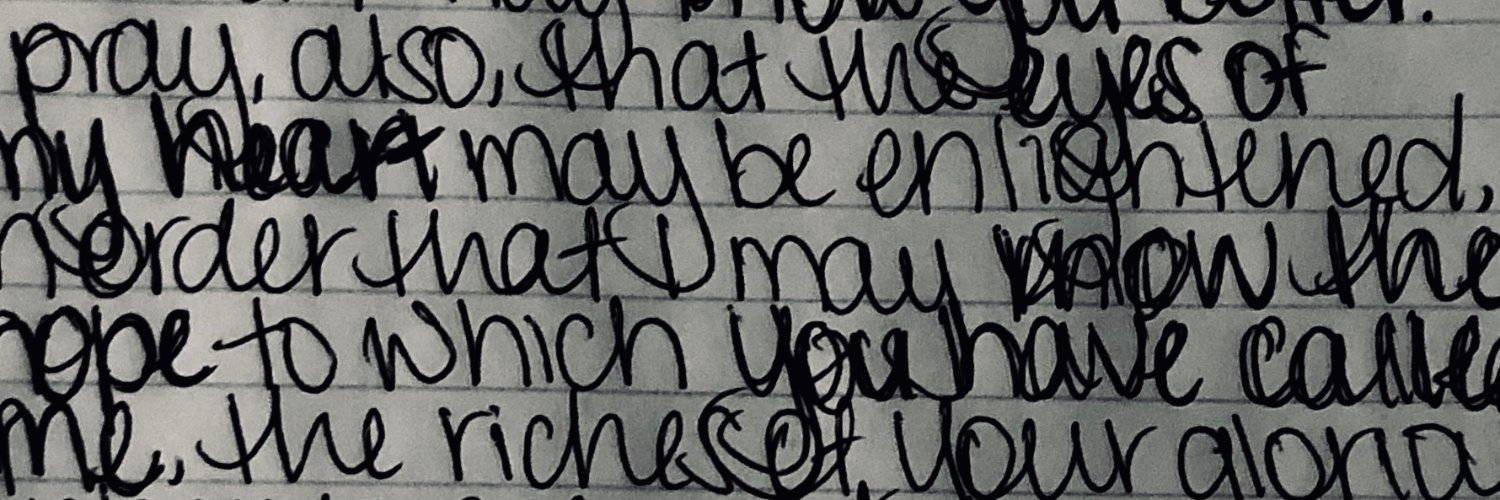 may know you better.
pray, also, that the eyes of
my heart may be enlightened,
in order that I may know the
hope to which you have called
me, the riches of your